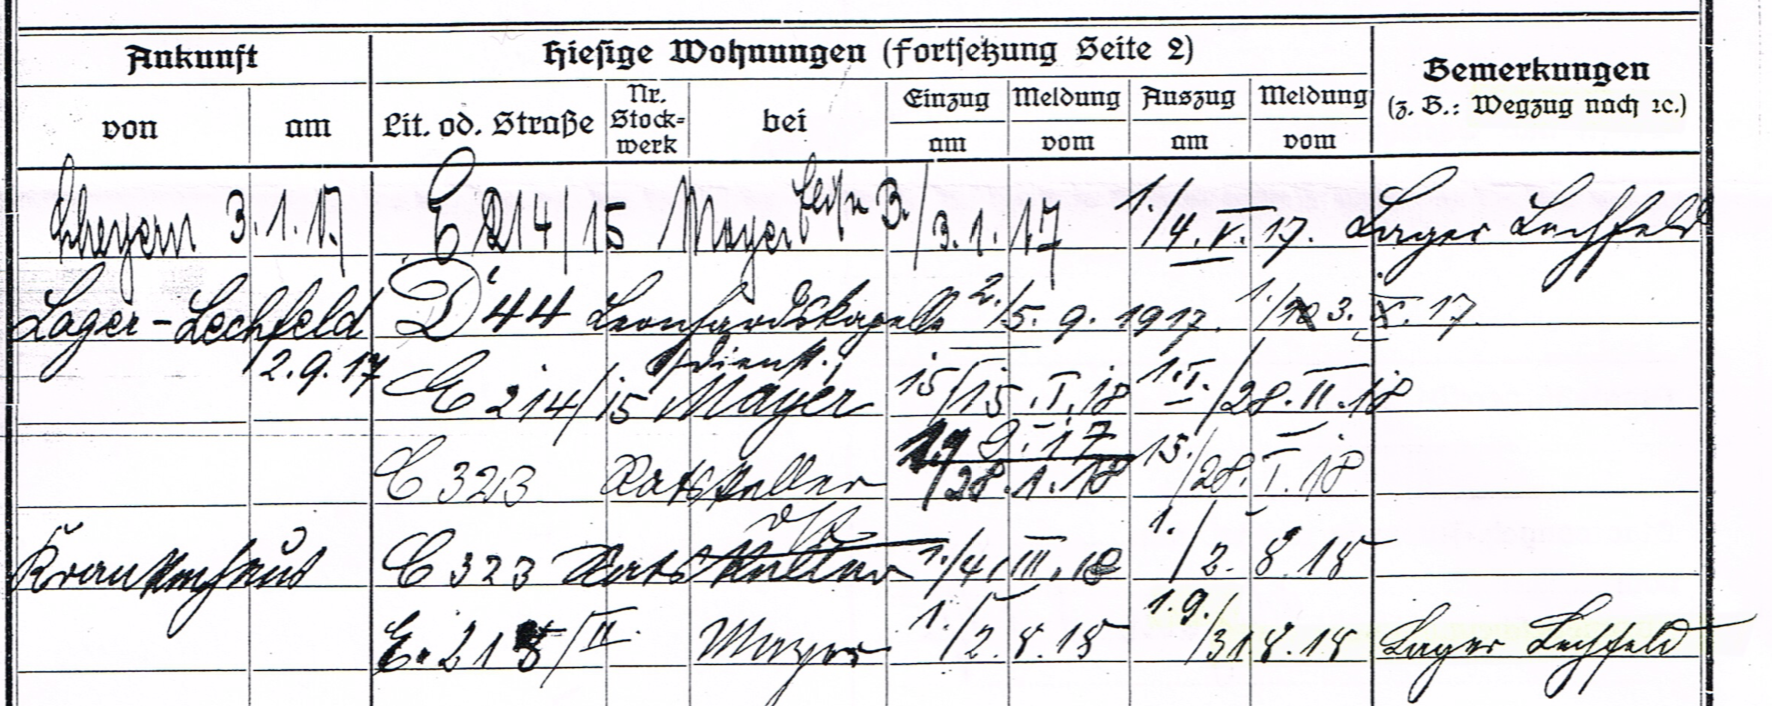 Ankunft Hiesige Wohnungen (Fortsetzung Seite 2) Bemerkungen
(z. B.: Wegzug nach ꝛc.)
von am Lit. od. Straße Nr. Stock-werk bei Einzug am Meldung vom Auszug am Meldung vom
3.1.17 E 214/15 Mayer 3./3.1.17 1./4.V.17. Lager Lechfeld
Lager-Lechfeld D 44 Leonhardskapelle 2./5.9.1917. 1./3.X.17.
2.9.17 E 214/15 dienst. Mayer 15/15.I.18 1.I./28.II.18
C 323 Ratskeller 28.1.18 15./28.I.18
Krankenhaus C 323 Ratskeller 1./4.III.18 1./2.8.18
E. 215/II. Mayer 1./2.8.18 1.9./31 8.18 Lager Lechfeld